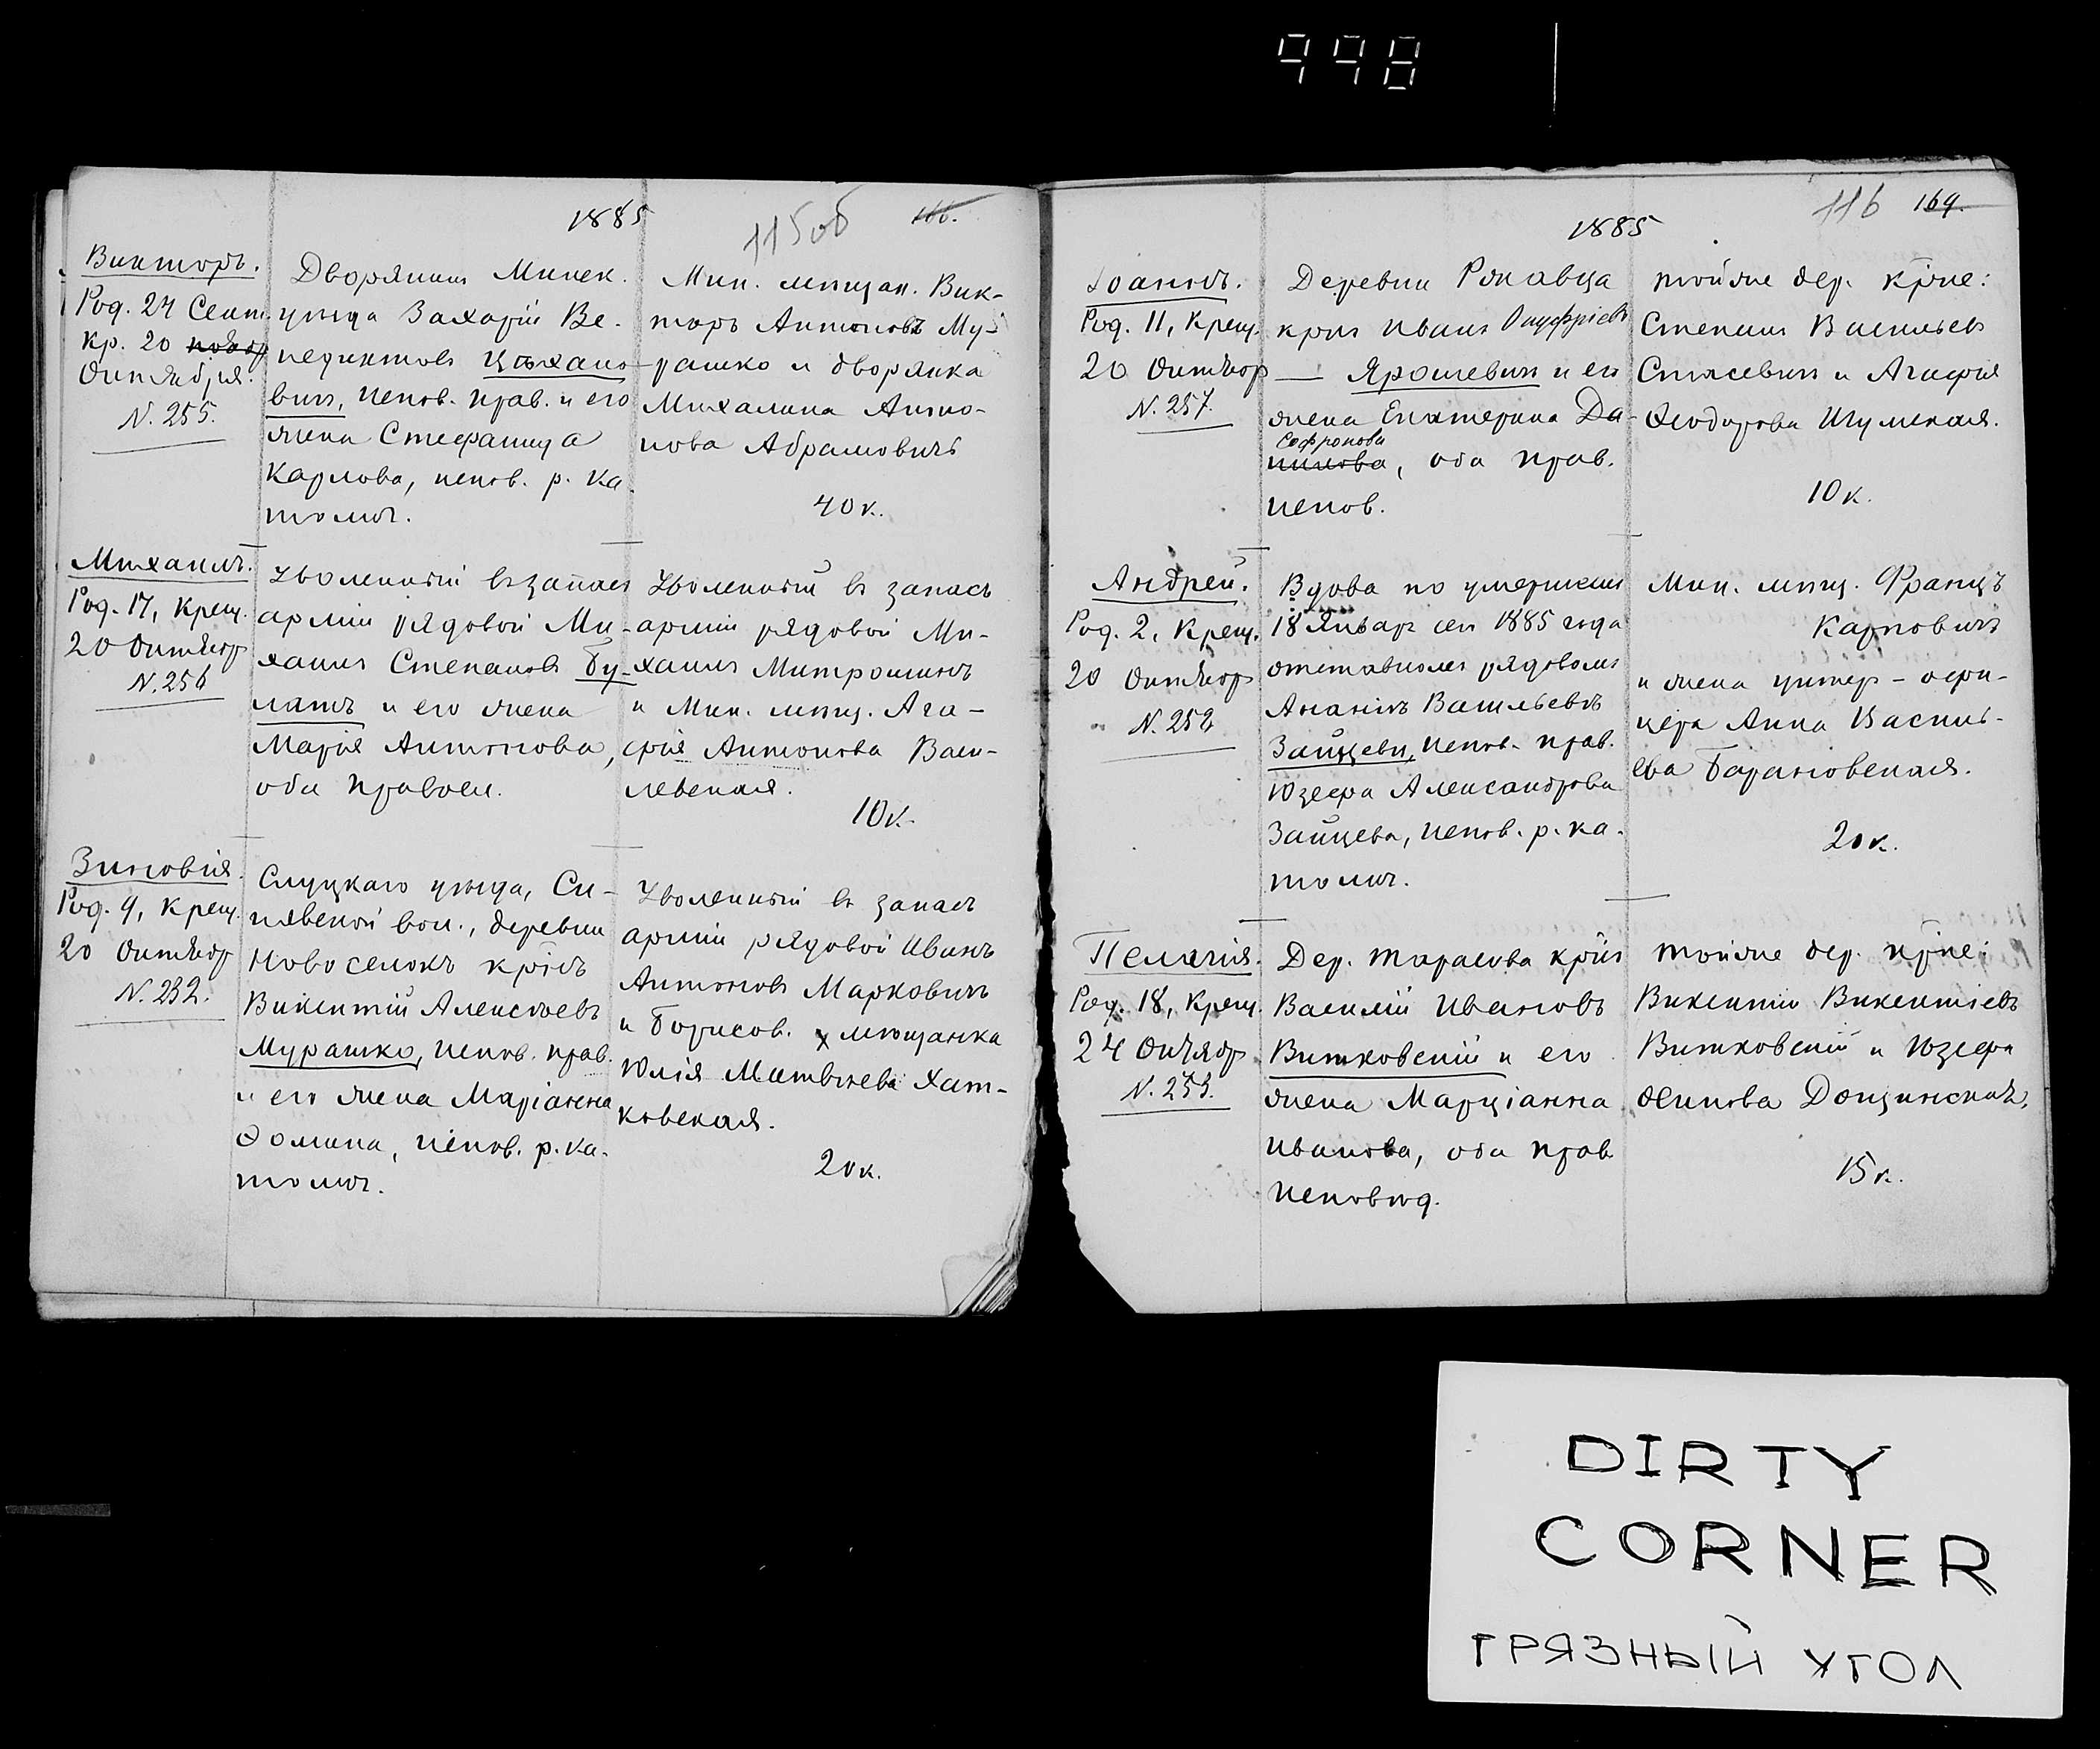 998
1885
115об
166.
Викторъ.
Род. 24 Сент.
Кр. 20 ноябр
Октября.
N. 255.
Дворянин Минск.
уѣзда Захарій Ве-
недиктовъ Цѣхано-
вичъ, испов. прав. и его
жена Стефанида
Карлова, испов. р. ка-
толич.
Мин. мѣщан. Вик-
торъ Антоновъ Му-
рашко и дворянка
Михалина Анто-
нова Абрамовичъ
40 к.
Михаилъ.
Род. 17, Крещ.
20 Октябр
N. 256
Уволенный въ запасъ
арміи рядовой Ми-
хаилъ Степановъ Бу-
латъ и его жена
Марія Антонова,
оба правосл.
Уволенный въ запасъ
арміи рядовой Ми-
хаилъ Митрошинъ
и Мин. мѣщ. Ага-
фія Антонова Васи-
левская.
10 к.
Зиновія.
Род. 9, Крещ.
20 Октябр
N. 232.
Слуцкаго уѣзда, Си-
нявской вол., деревни
Новоселокъ крѣнъ
Викентій Алексѣевъ
Мурашко, испов. прав.
и его жена Маріанна
Ѳомина, испов. р. ка-
толич.
Уволенный въ запасъ
арміи рядовой Иванъ
Антоновъ Марковичъ
и Борисов. мѣщанка
Юлія Матвѣева Хат-
ковская.
20 к.
1885
116
169.
Іоаннъ.
Род. 11, Крещ.
20 Октябр
N. 257.
Деревни
крнъ Иванъ Онуфріевъ
— Ярошевичъ и его
жена Екатерина Да-
Софронова
нилова, оба прав.
испов.
тойже дер. крне:
Степанъ Васильевъ
Стасевичъ и Агафія
Ѳеодорова Игуменская.
10 к.
Андрей.
Род. 2, Крещ.
20 Октябр
N. 252
Вдова по умершемъ
18 Январ сего 1885 года
отставномъ рядовомъ
Ананіѣ Васильевѣ
Зайцевѣ, испов. прав.
Юзефа Александрова
Зайцева, испов. р. ка-
толич.
Мин. мѣщ. Францъ
Карповичъ
и жена унтер-офи-
цера Анна Василь-
ева Барановская.
20 к.
Пелагія.
Род. 18, Крещ.
24 Октябр
N. 253.
Дер. Тарасова крнъ
Василій Ивановъ
Витковскій и его
жена Марціанна
Иванова, оба прав
исповѣд.
тойже дер. крне:
Викентій Викентіевъ
Витковскій и Юзефа
Осипова Донцинская,
15 к.
DIRTY
CORNER
ГРЯЗНЫЙ УГОЛ